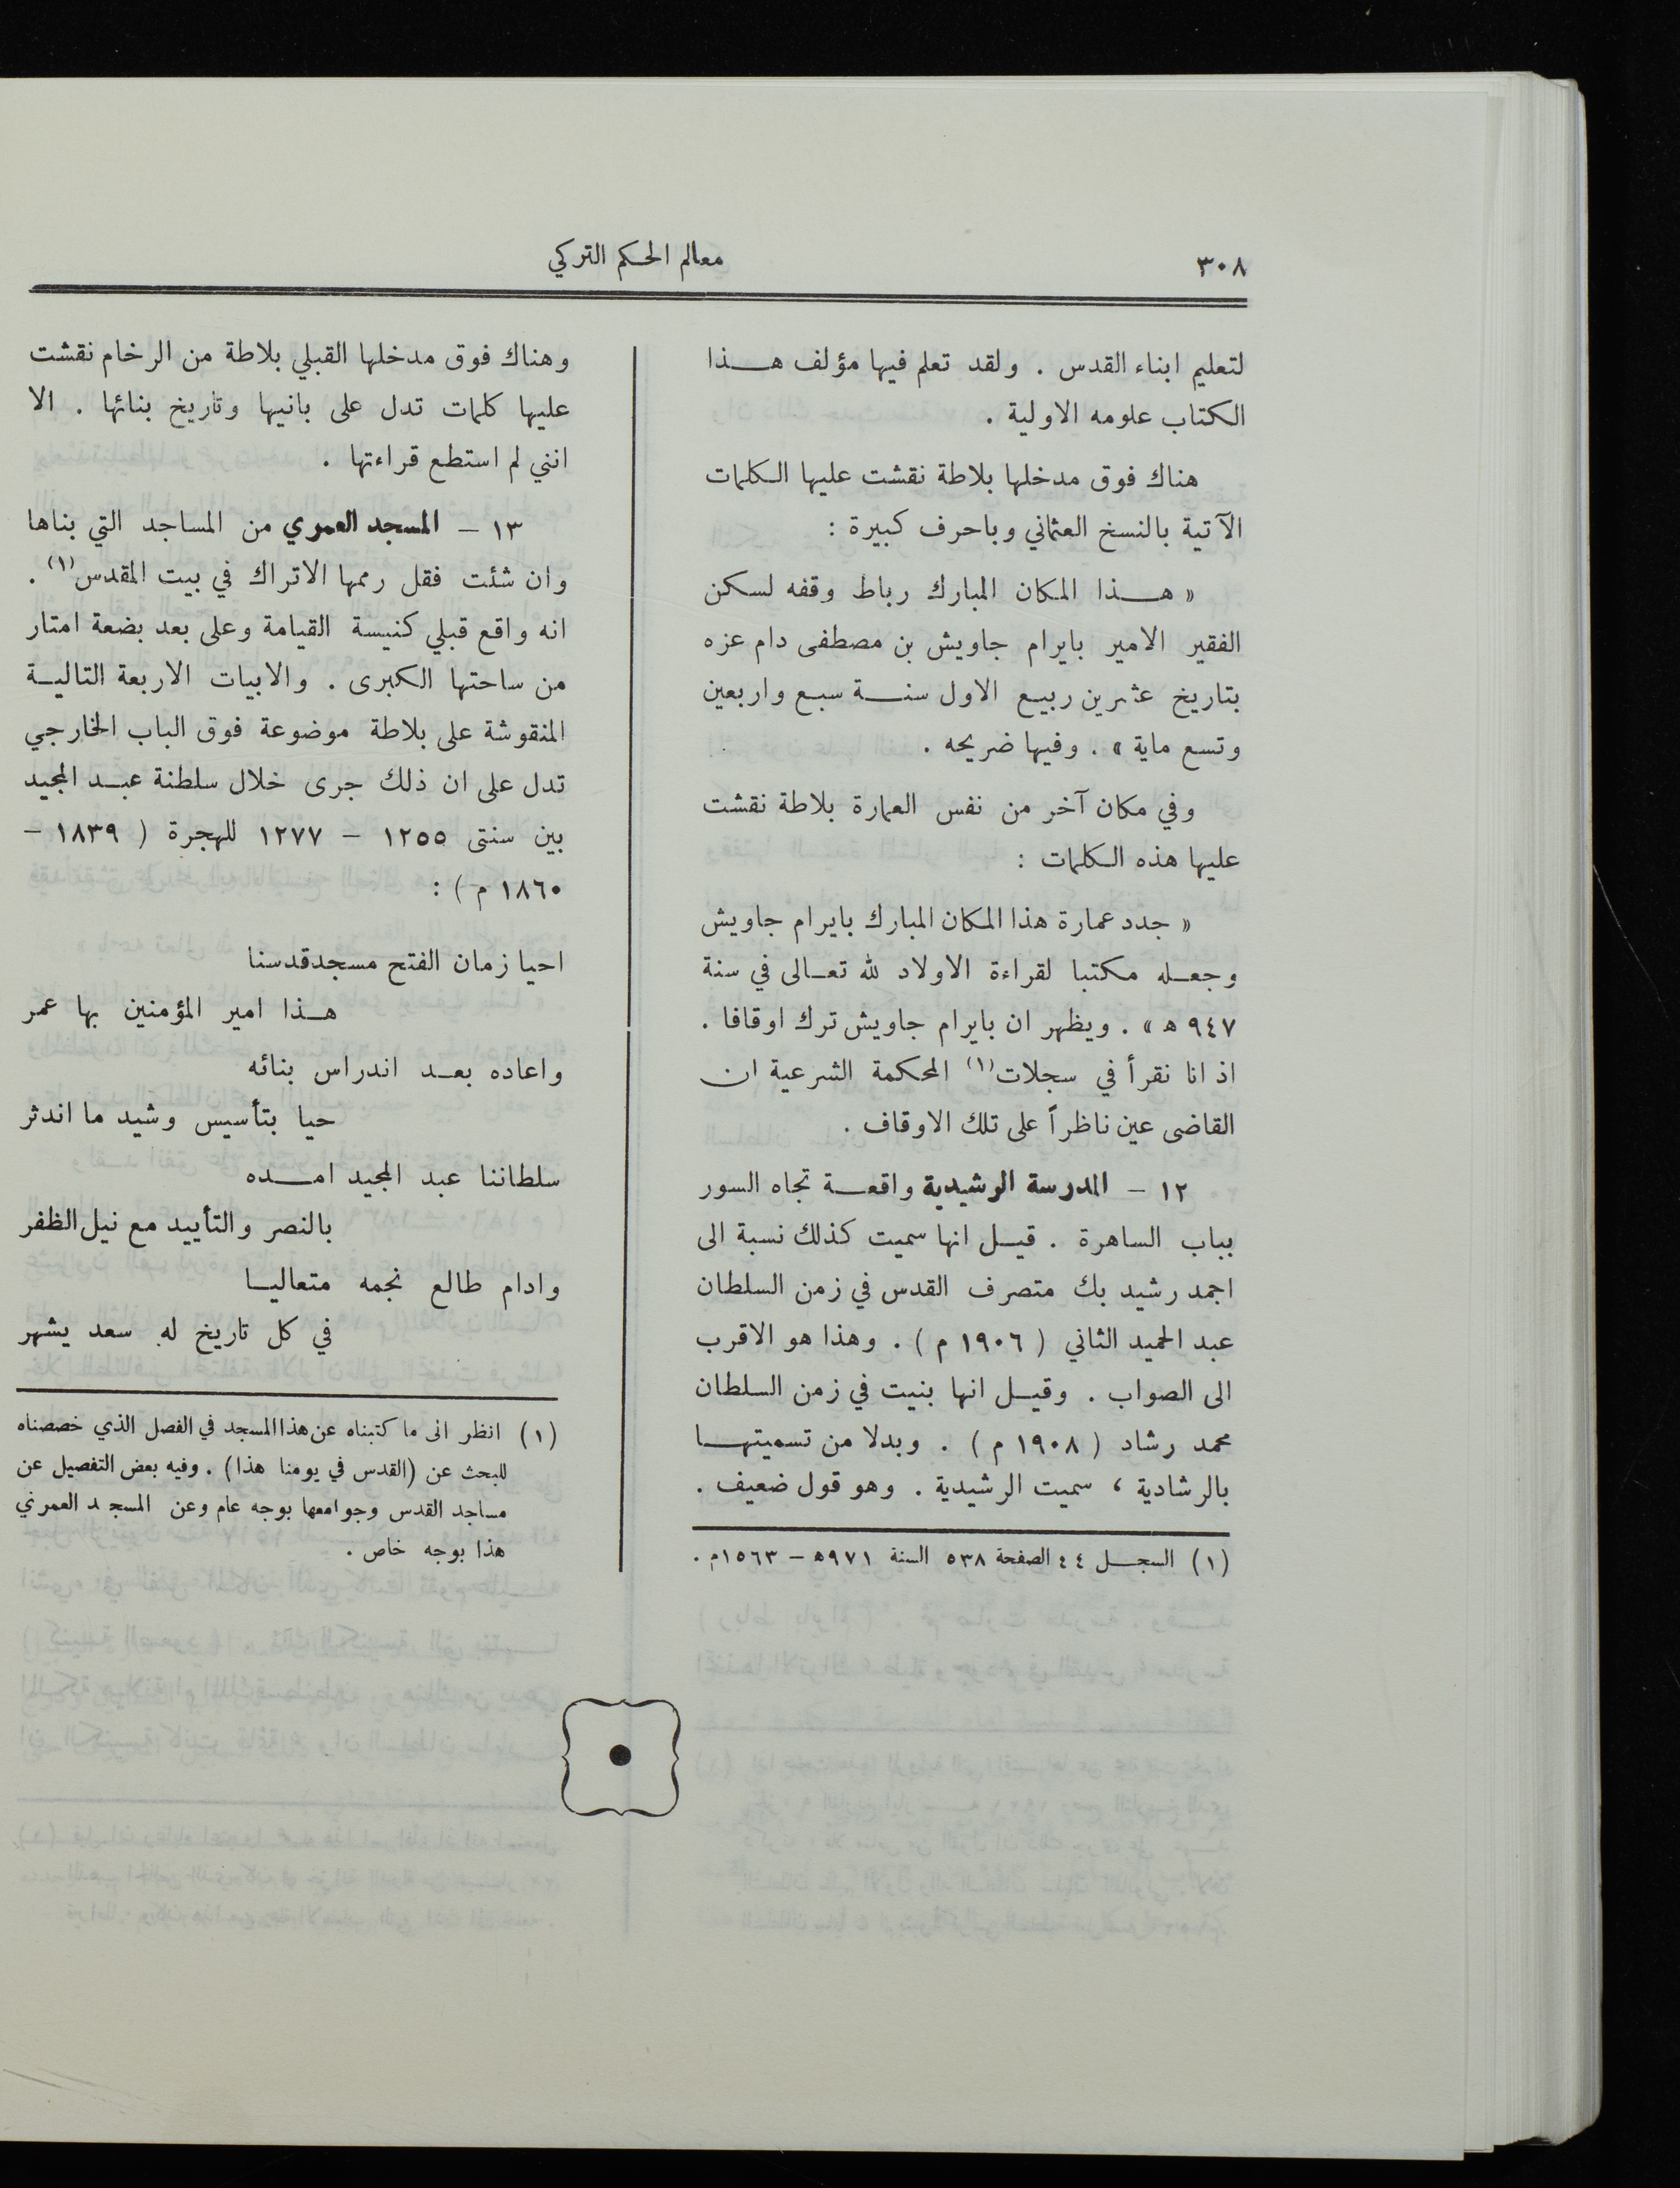 ٣٠٨
معالم الحكم التركي
لتعليم ابناء القدس . ولقد تعلم فيها مؤلف هذا
الكتاب علومه الاولية .
هناك فوق مدخلها بلاطة نقشت عليها الكلمات
الآتية بالنسخ العثماني وباحرف كبيرة :
« هذا المكان المبارك رباط وقفه لسكن
الفقير الامير بايرام جاويش بن مصطفى دام عزه
بتاريخ عشرين ربيع الاول سنة سبع واربعين
وتسع ماية » . وفيها ضريحه .
وفي مكان آخر من نفس العمارة بلاطة نقشت
عليها هذه الكلمات :
« جدد عمارة هذا المكان المبارك بايرام جاويش
وجعله مكتبا لقراءة الاولاد لله تعالى في سنة
٩٤٧ ه » . ويظهر ان بايرام جاويش ترك اوقافا .
اذ انا نقرأ في سجلات(١) المحكمة الشرعية ان
القاضى عين ناظراً على تلك الاوقاف .
١٢ – المدرسة الرشيدية واقعة تجاه السور
بباب الساهرة . قيل انها سميت كذلك نسبة الى
احمد رشيد بك متصرف القدس في زمن السلطان
عبد الحميد الثاني ( ١٩٠٦ م ) . وهذا هو الاقرب
الى الصواب . وقيل انها بنيت في زمن السلطان
محمد رشاد ( ١٩٠٨ م ) . وبدلا من تسميتها
بالرشادية ، سميت الرشيدية . وهو قول ضعيف .
(١) السجل ٤٤ الصفحة ٥٣٨ السنة ٩٧١ه – ١٥٦٣م .
وهناك فوق مدخلها القبلي بلاطة من الرخام نقشت
عليها كلمات تدل على بانيها وتاريخ بنائها . الا
انني لم استطع قراءتها .
١٣ – المسجد العمري من المساجد التي بناها
وان شئت فقل رممها الاتراك في بيت المقدس(١) .
انه واقع قبلي كنيسة القيامة وعلى بعد بضعة امتار
من ساحتها الكبرى . والابيات الاربعة التالية
المنقوشة على بلاطة موضوعة فوق الباب الخارجي
تدل على ان ذلك جرى خلال سلطنة عبد المجيد
بين سنتى ١٢٥٥ – ١٢٧٧ للهجرة ( ١٨٣٩ –
١٨٦٠ م ) :
احيا زمان الفتح مسجدقدسنا
هذا امير المؤمنين بها عمر
واعاده بعد اندراس بنائه
حيا بتأسيس وشيد ما اندثر
سلطاننا عبد المجيد امده
بالنصر والتأييد مع نيل الظفر
وادام طالع نجمه متعاليا
في كل تاريخ له سعد يشهر
(١) انظر الى ما كتبناه عن هذا المسجد في الفصل الذي خصصناه
للبحث عن (القدس في يومنا هذا) . وفيه بعض التفصيل عن
مساجد القدس وجوامعها بوجه عام وعن المسجد العمري
هذا بوجه خاص .